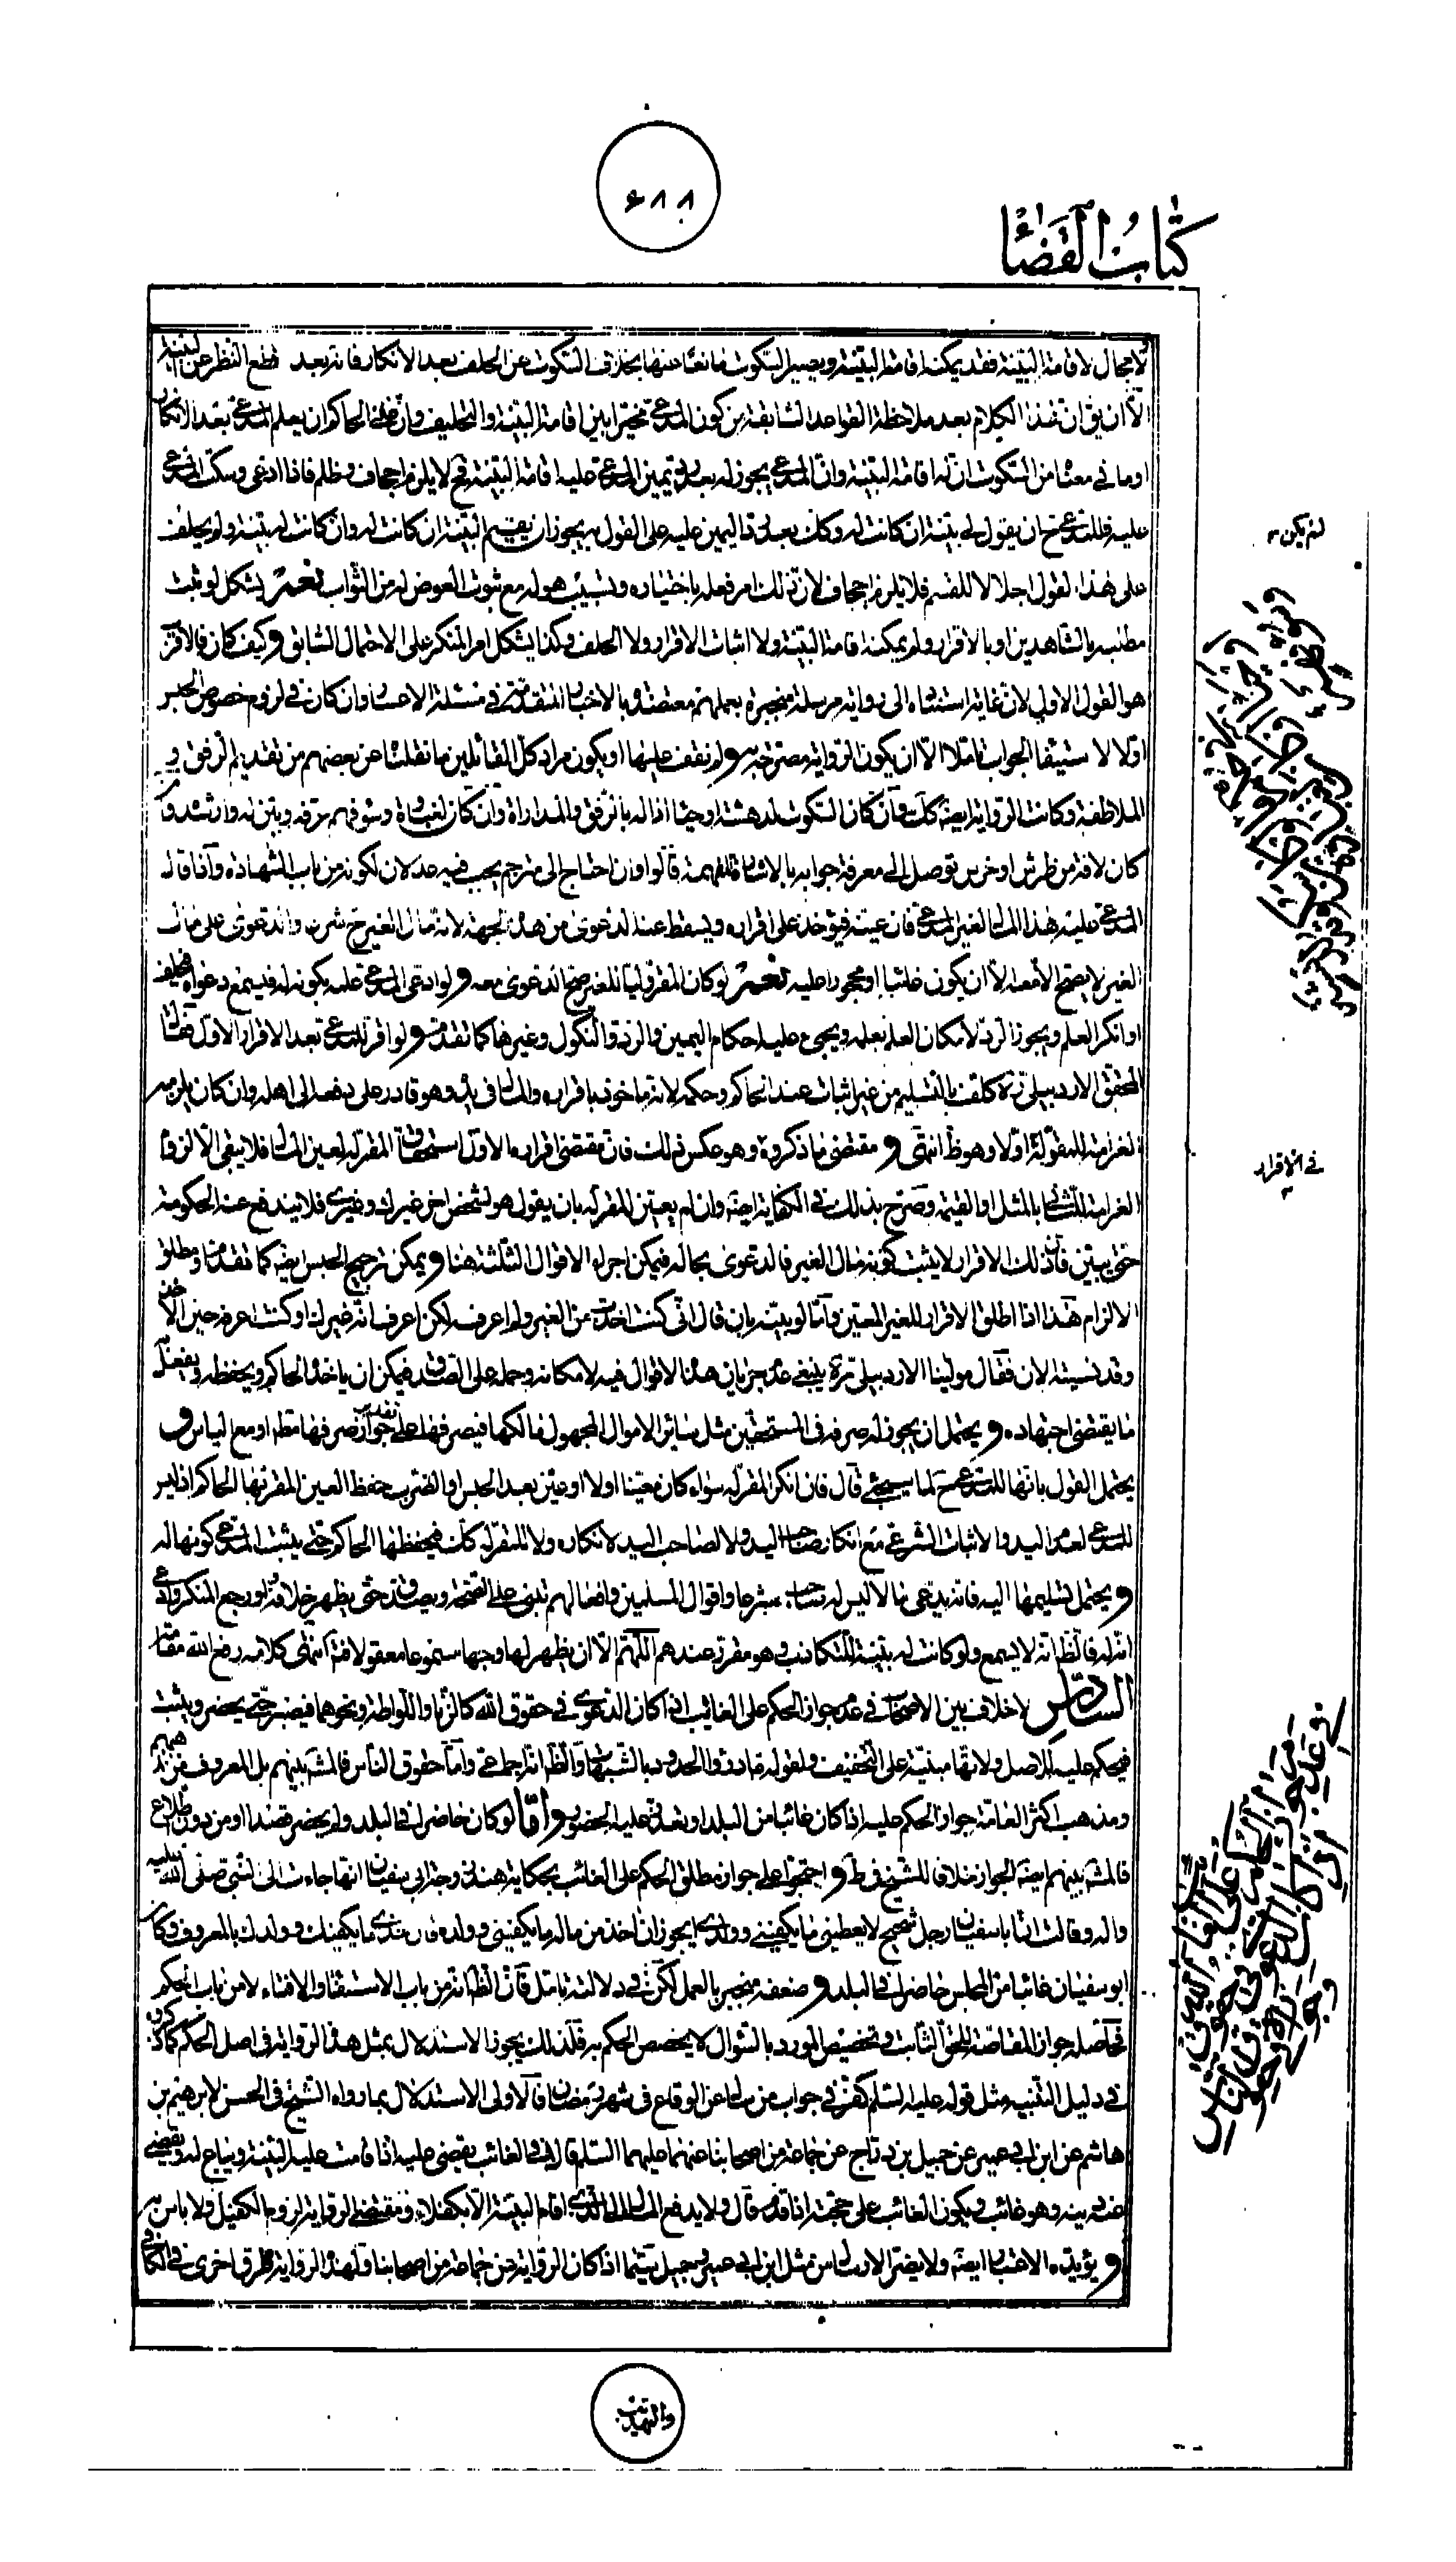 ۶۸۸
كتاب القضاء
لا مجال لاقامة البيّنة فقد يمكنه اقامة البيّنة ويصير السكوت مانعا عنها بخلاف السكوت عن الحلف بعد الانكار فانه بعد قطع النظر عن البينة
الّا ان يق ان هذا الكلام بعد ملاحظة القواعد السابقة من كون المدعى مخيّرا بين اقامة البيّنة والتحليف وان على الحاكم ان يعلم المدعى بعد الانكار
او ما فى معناه من السكوت ان له اقامة البيّنة وان المدعى يجوز له بعد رد يمين المدعى عليه اقامة البيّنة فح لا يلزم اجحاف وظلم فاذا ادعى وسكت المدعى
عليه فللمدعى ح ان يقول لى بيّنة ان كانت له وكك بعد رد اليمين عليه على القول به يجوز ان يقيم البيّنة ان كانت له وان كانت له بيّنة ولم يحلف
على هذا القول اجلالا للقسم فلا يلزم اجحاف لان ذلك امر فعله باختياره وتسبيب هو له مع ثبوت العوض له من الثواب نعم يشكل لو ثبت
مطلبه بالشاهدين او بالاقرار ولم يمكنه اقامة البيّنة ولا اثبات الاقرار ولا الحلف وكذا يشكل امر المنكر على الاحتمال السابق وكيف كان فالاقرب
هو القول الاول لان غاية استناده الى رواية مرسلة منجبرة بعملهم معتضدة بالاخبار المتقدمة فى مسئلة الاعسار وان كان فى لزوم خصوص الحبس
اولا لاستيفاء الجواب تاملا الّا ان يكون الرواية مصرّحة به ولم نقف عليها او يكون مراد كل القائلين ما نقلنا عن بعضهم من تقديم الرفق و
الملاطفة وكانت الرواية ايضا كك وان كان السكوت لدهشة او حياء ازاله بالرفق والمداراة وان كان لغباوة وسوء فهم عرّفه وبيّن له وارشده و
كان لافة من طرش او خرس توصل الى معرفة جوابه بالاشارة المفهمة قالوا وان احتاج الى مترجم يجب فيه عدلان لكونه من باب الشهادة واذا قال
المدعى عليه هذا المال لغير المدعى فان عيّنه فيؤخذ على اقراره ويسقط عنه الدعوى من هذه الجهة لانه مال الغير ح شرعا والدعوى على مال
الغير لا يصح الا معه الا ان يكون غائبا او محجورا عليه نعم لو كان المقر وليا للغير صح الدعوى معه ولو ادعى المدعى علمه بكونه له فيسمع دعواه فيحلف
او انكر العلم ويجوز الرد لامكان العلم بعلمه ويجىء عليه احكام اليمين والرد والنكول وغيرها كما تقدمت ولو اقر للمدعى بعد الاقرار الاول فقال
المحقق الاردبيلى ره كلف بالتسليم من غير اثبات عند الحاكم وحكمه لانه ماخوذ باقراره والمال فى يده وهو قادر على دفعه الى اهله وان كان يلزمه
الغرامة للمقر له اولا وهو ظ انتهى ومقتضى ما ذكروه وهو عكس ذلك فان مقتضى اقراره الاول استحقاق المقر له لعين المال فلا يبقى الا لزوم
الغرامة للثانى بالمثل او القيمة وصرح بذلك فى الكفاية ايضا وان لم يعيّن المقر له بان يقول هو لشخص اخر غيرك وغيرى فلا يندفع عنه الحكومة
حتى يبيّن فان ذلك الاقرار لا يثبت كونه مال الغير فالدعوى بحاله فيمكن اجراء الاقوال الثلثة هنا ويمكن ترجيح الحبس ايضا كما تقدم او مطلق
الالزام هذا اذا اطلق الاقرار للغير المعين واما لو بينه بان قال انى كنت اخذته من الغير ولم اعرفه لكن اعرف انه غيرك او كنت اعرفه حين الاخذ
وقد نسيته الان فقال مولينا الاردبيلى ره ينبغى عدم جريان هذه الاقوال فيه لامكانه وحمله على الصدق فيمكن ان ياخذه الحاكم ويحفظه ويفعل
ما يقتضى اجتهاده ويحتمل ان يجوز له صرفه فى المستحقين مثل سائر الاموال المجهول مالكها فيصرفها على تقدير جواز صرفها مطلقا او مع الياس و
يحتمل القول بانها للمدعى ح لما سيجىء قال فان انكر المقر له سواء كان معينا اولا او عين بعد الحبس او الضرب حفظ العين المقر بها الحاكم اذ ليس
للمدعى لعدم اليد والاثبات الشرعى مع انكار صاحب اليد ولا لصاحب اليد لانكاره ولا للمقر له كك فيحفظها الحاكم حتى يثبت المدعى كونها له
ويحتمل تسليمها اليه فانه يدعى مالا ليس له صاحب شرعا واقوال المسلمين وافعالهم تبنى على الصحة ويصدق حتى يظهر خلافه ولو رجع المنكر وادعى
انه له فالظ انه لا يسمع ولو كانت له بيّنة للتكاذب وهو مقرر عندهم اللهم الا ان يظهر لها وجها مسموعا معقولا فت انتهى كلامه رفع الله مقامه
السادس لا خلاف بين الاصحاب فى عدم جواز الحكم على الغائب اذا كان الدعوى فى حقوق الله كالزنا واللواط ونحوهما فيصبر حتى يحضر ويثبت
فيحكم عليه للاصل ولانها مبنيّة على التخفيف ولقوله ع ادرؤا الحدود بالشبهات والظ انه اجماعى واما حقوق الناس فالمشه بينهم بل المعروف من مذهبهم
ومذهب اكثر العامة جواز الحكم عليه اذا كان غائبا من البلد او تعذر عليه الحضور واما لو كان حاضرا فى البلد ولم يحضر قصدا او من دون اطلاع
فالمشه بينهم ايضا الجواز خلافا للشيخ فى ط واحتجوا على جواز مطلق الحكم على الغائب بحكاية هند زوجة ابى سفيان انها جاءت الى النبى صلى الله عليه
واله وقالت ان ابا سفيان رجل شحيح لا يعطينى ما يكفينى وولدى ايجوز ان اخذ من ماله ما يكفينى وولدى فقال خذى ما يكفيك وولدك بالمعروف وكان
ابو سفيان غائبا من المجلس حاضرا فى البلد وضعفه منجبر بالعمل لكن فى دلالته تامل فان الظ انه من باب الاستفتاء والافتاء لا من باب الحكم
فحاصله جواز المقاصة للحق الثابت وتخصيص المورد بالسؤال لا يخصص الحكم به فلذلك يجوز الاستدلال بمثل هذه الرواية فى اصل الحكم كما ذكروه
فى دليل التنبيه مثل قوله عليه السلم كفر فى جواب من سال عن الوقاع فى شهر رمضان فالاولى الاستدلال بما رواه الشيخ فى الحسن لابرهيم بن
هاشم عن ابن ابى عمير عن جميل بن دراج عن جماعة من اصحابنا عنهما عليهما السلم قال فى الغائب يقضى عليه اذا قامت عليه البيّنة ويباع له ويقضى
عنه دينه وهو غائب ويكون الغائب على حجته اذا قدم قال ولا يدفع المال الى الذى اقام البيّنة الا بكفلاء ومقتضى الرواية لزوم الكفيل ولا باس به
ويؤيده الاعتبار ايضا ولا يضر الارسال من مثل ابن ابى عمير وجميل سيّما اذا كان الرواية عن جماعة من اصحابنا ولهذا الرواية طرق اخرى فى الكافى
والتهذيب
لم يكن
فى الاقرار